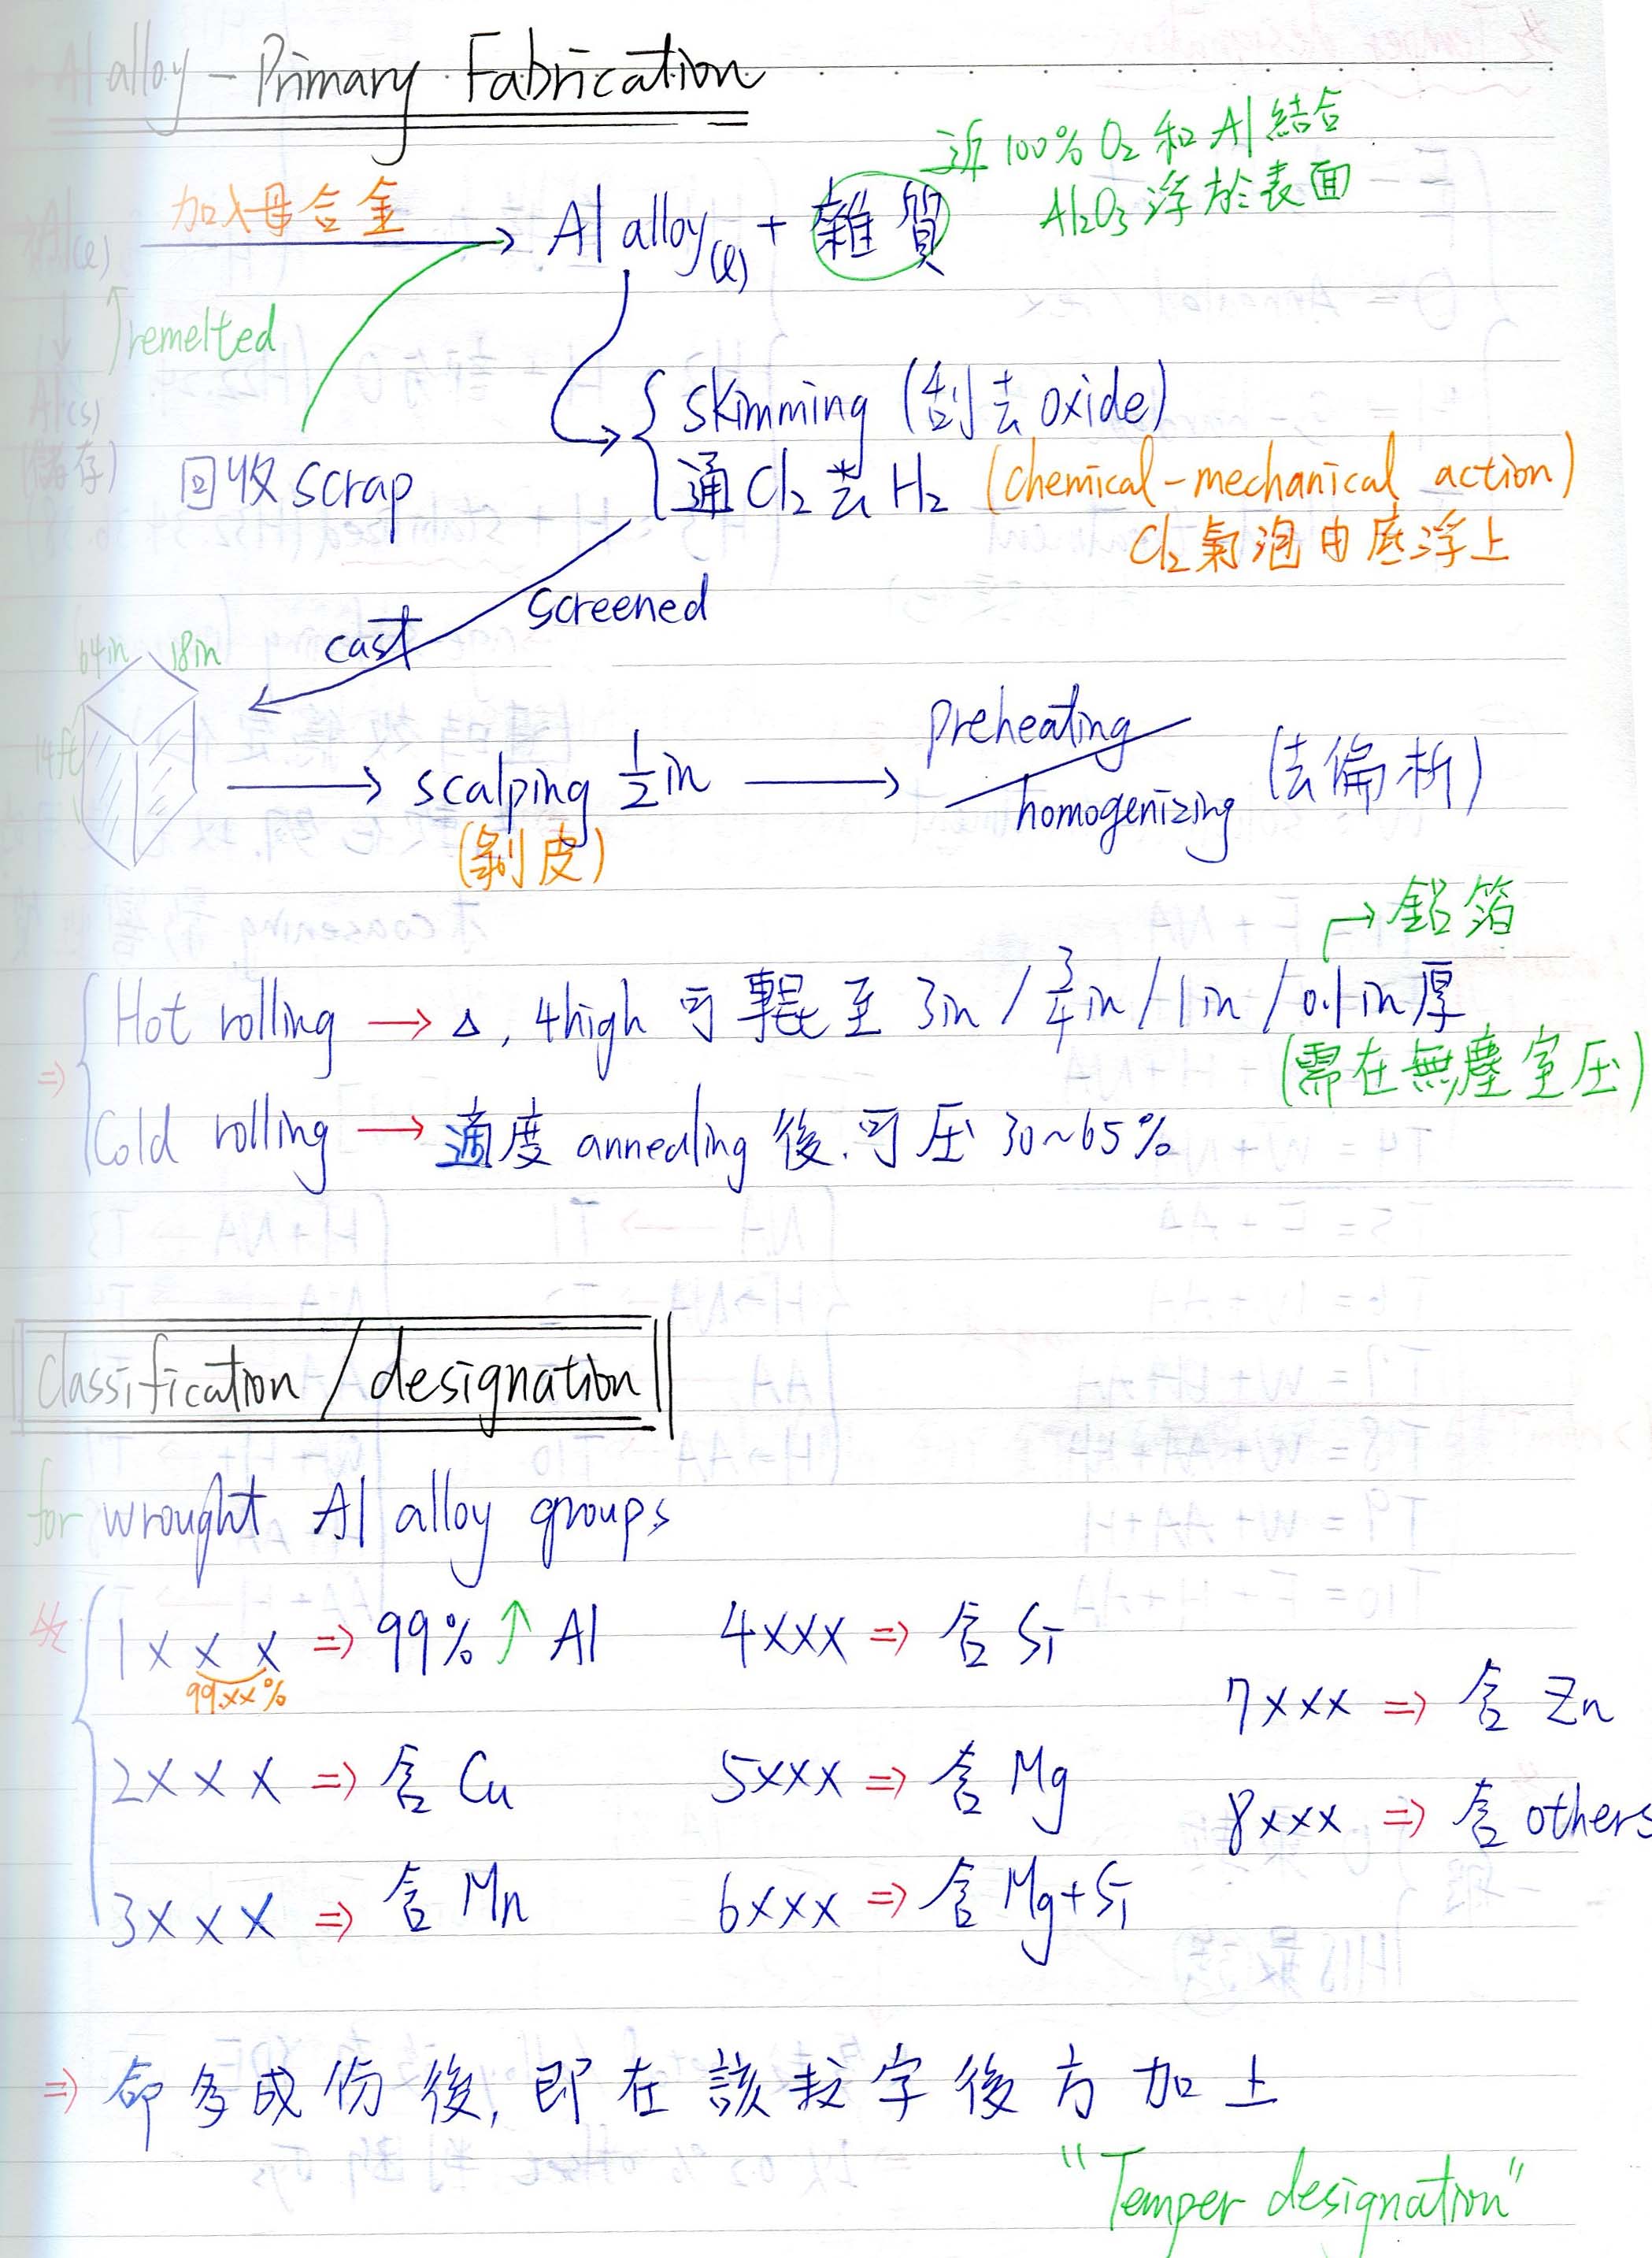 Al alloy - Primary Fabrication
近100% O2 和 Al 結合
Al2O3 浮於表面
純Al(l) 加入母合金 → Al alloy(l) + 雜質
↓ ↑remelted
Al(s)
(儲存)
回收 scrap
skimming (刮去 oxide)
通 Cl2 去 H2 (chemical-mechanical action)
Cl2 氣泡由底浮上
screened
cast
64in 18in
14ft
→ scalping 1/2 in → preheating / homogenizing (去偏析)
(剝皮)
→ 鋁箔
⇒ Hot rolling → Δ, 4high 可輥至 3in / 3/4 in / 1in / 0.1in 厚
(需在無塵室压)
Cold rolling → 適度 annealing 後, 可压 30~65%
Classification / designation
for wrought Al alloy groups
1xxx ⇒ 99%↑ Al 4xxx ⇒ 含 Si
99.xx%
7xxx ⇒ 含 Zn
2xxx ⇒ 含 Cu 5xxx ⇒ 含 Mg
8xxx ⇒ 含 others
3xxx ⇒ 含 Mn 6xxx ⇒ 含 Mg+Si
⇒ 命名成份後, 即在該数字後方加上
"Temper designation"